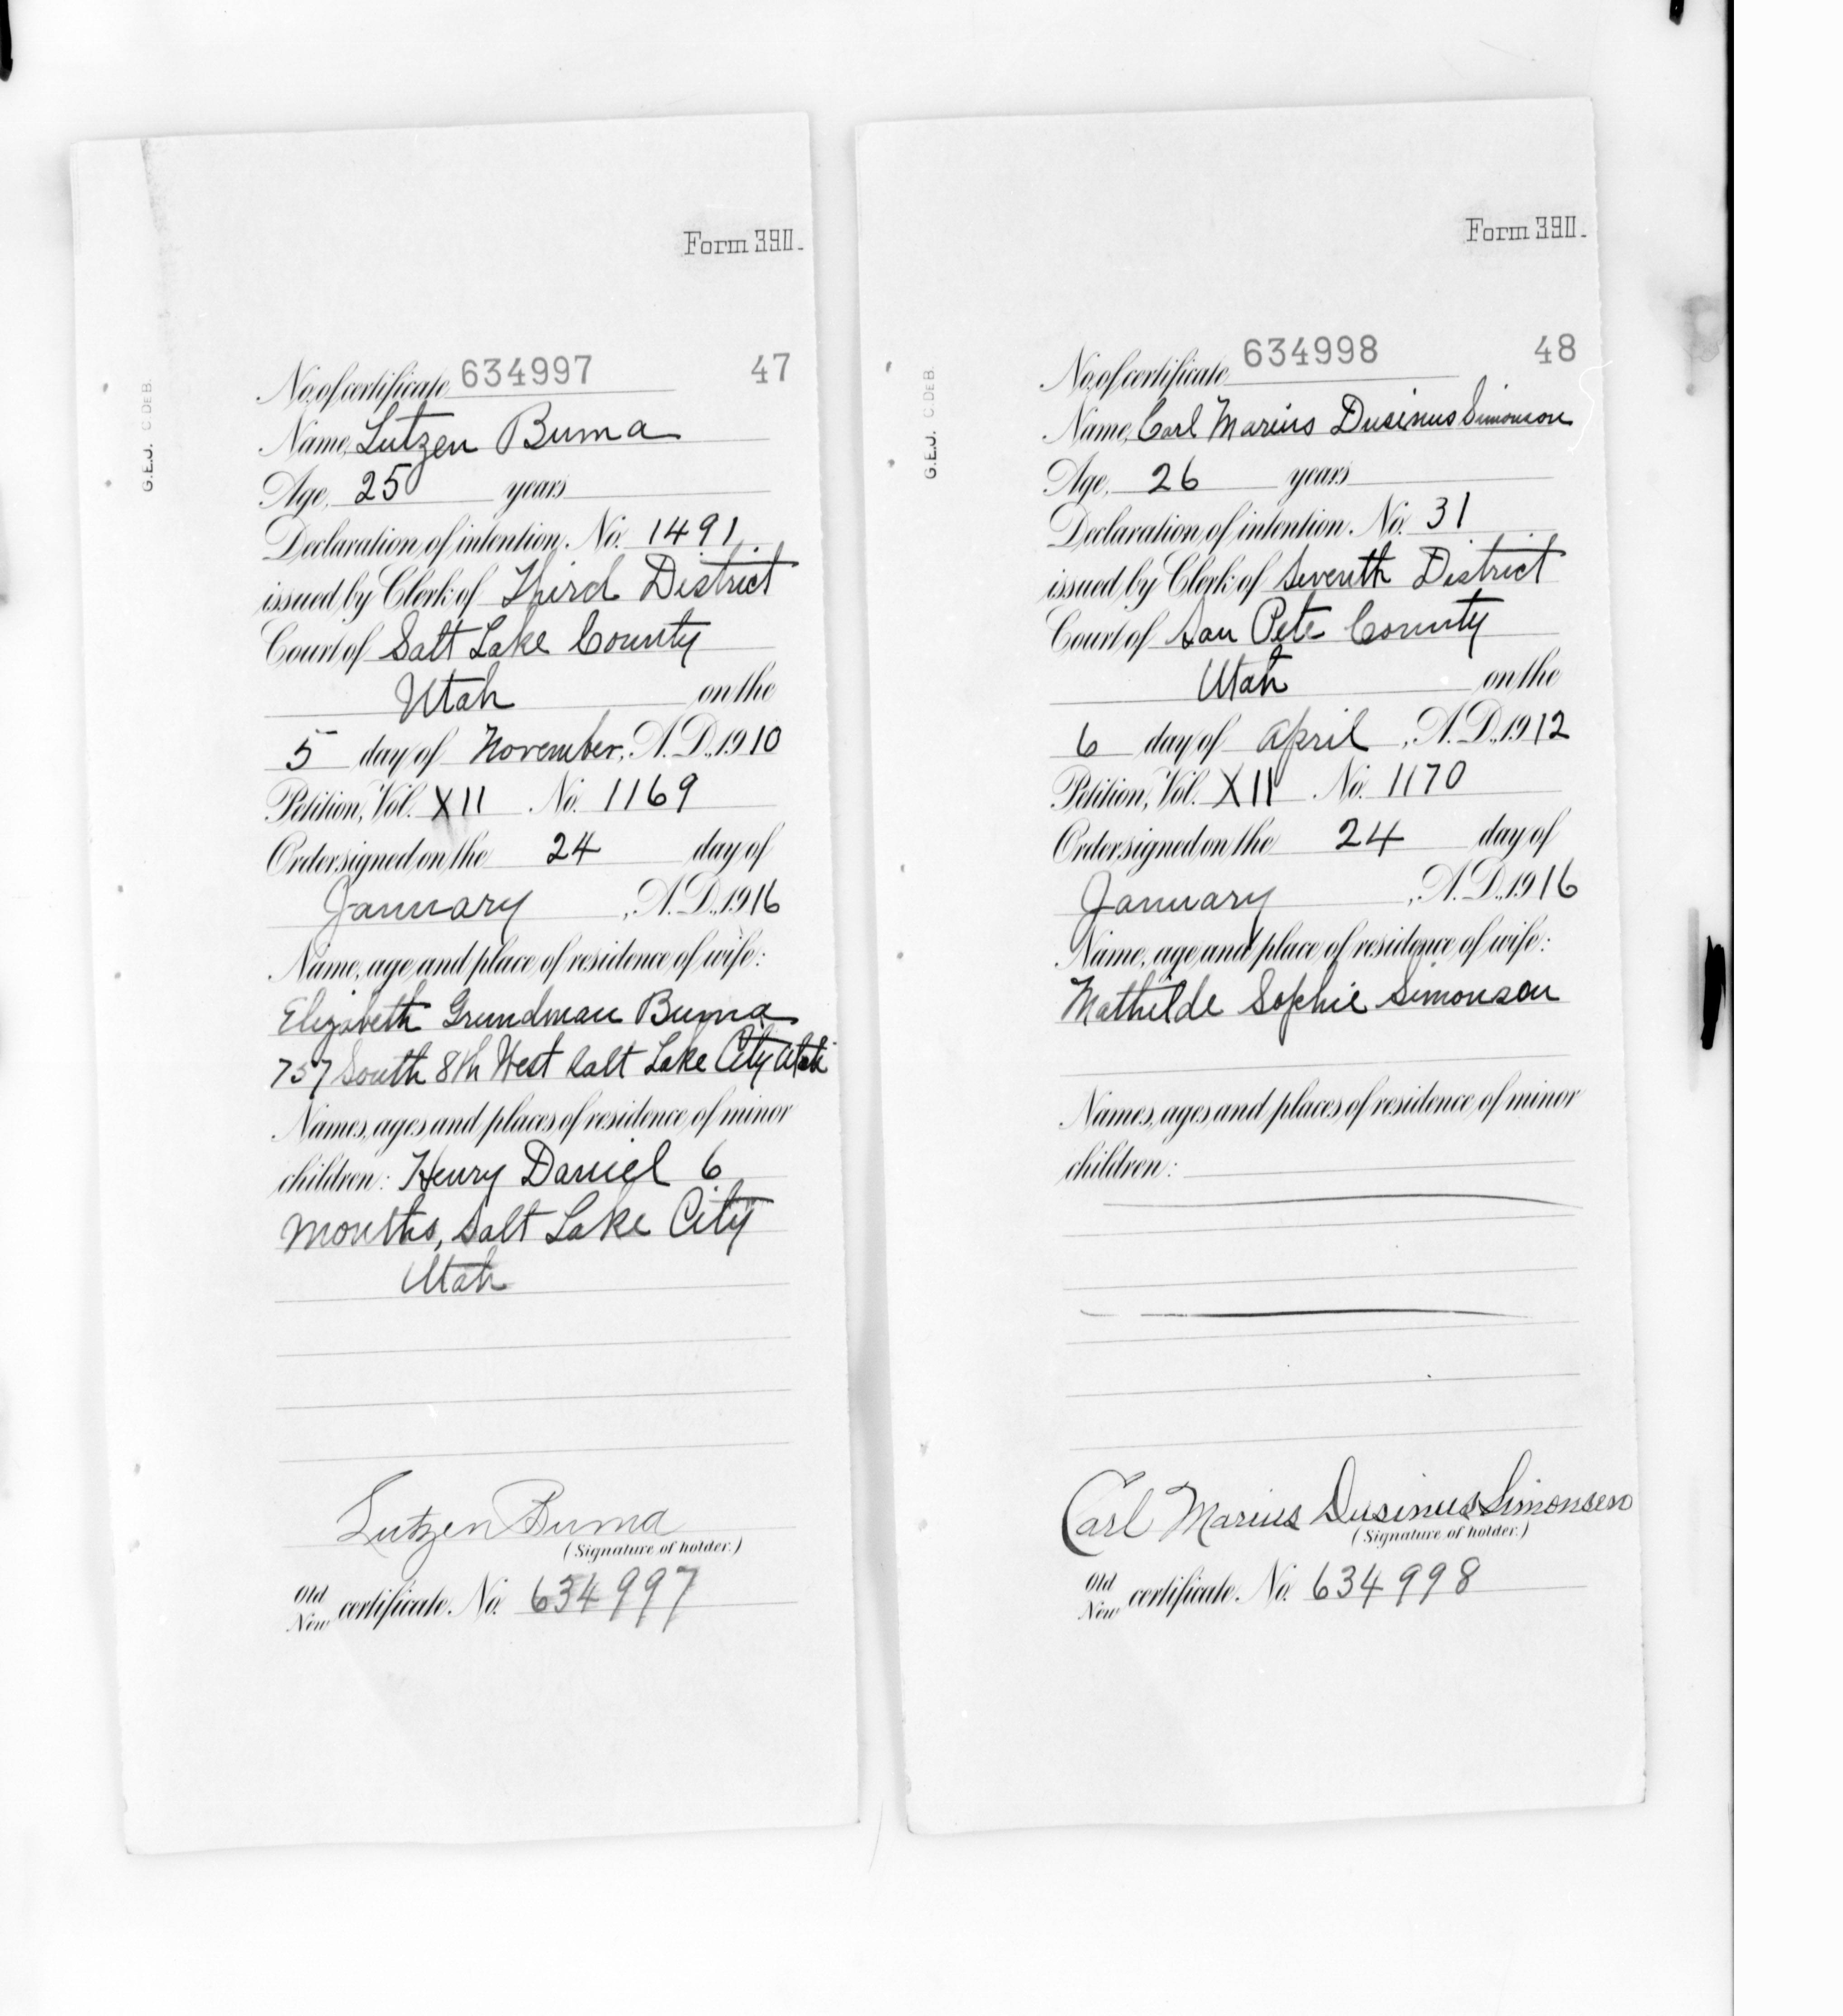 Form 390.
G.E.J. C.DEB.
No. of certificate 634997 47
Name, Lutzen Buma
Age, 25 years
Declaration of intention. No. 1491
issued by Clerk of Third District
Court of Salt Lake County
Utah on the
5 day of November, A. D., 1910
Petition, Vol. XII No. 1169
Order signed on the 24 day of
January , A. D., 1916
Name, age and place of residence of wife:
Elizabeth Grundman Buma
757 South 8th West Salt Lake City Utah
Names, ages and places of residence of minor
children: Henry Daniel 6
months, Salt Lake City
Utah
Lutzen Buma
(Signature of holder.)
Old
New certificate. No. 634997
Form 390.
G.E.J. C.DEB.
No. of certificate 634998 48
Name, Carl Marius Dusinus Simonson
Age, 26 years
Declaration of intention. No. 31
issued by Clerk of Seventh District
Court of San Pete County
Utah on the
6 day of April , A. D., 1912
Petition, Vol. XII No. 1170
Order signed on the 24 day of
January , A. D., 1916
Name, age and place of residence of wife:
Mathilde Sophie Simonson
Names, ages and places of residence of minor
children:
Carl Marius Dusinus Simonsen
(Signature of holder.)
Old
New certificate. No. 634998